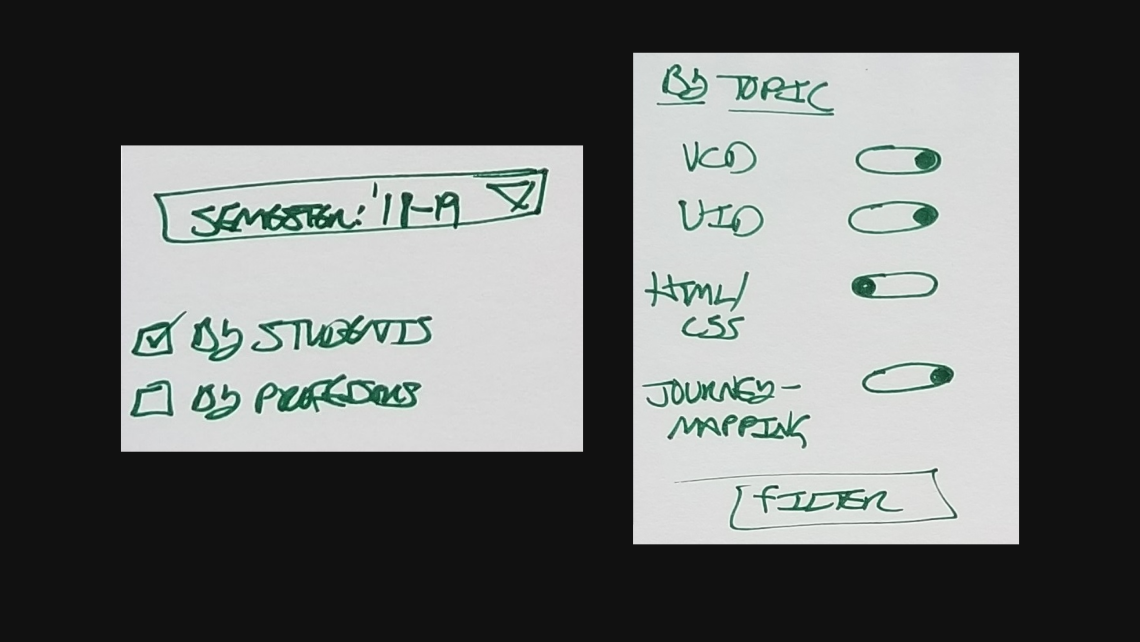 SEMESTER: '18-19
By STUDENTS
By PROFESSORS
By TOPIC
VCD
UID
HTML/
CSS
JOURNEY-
MAPPING
FILTER